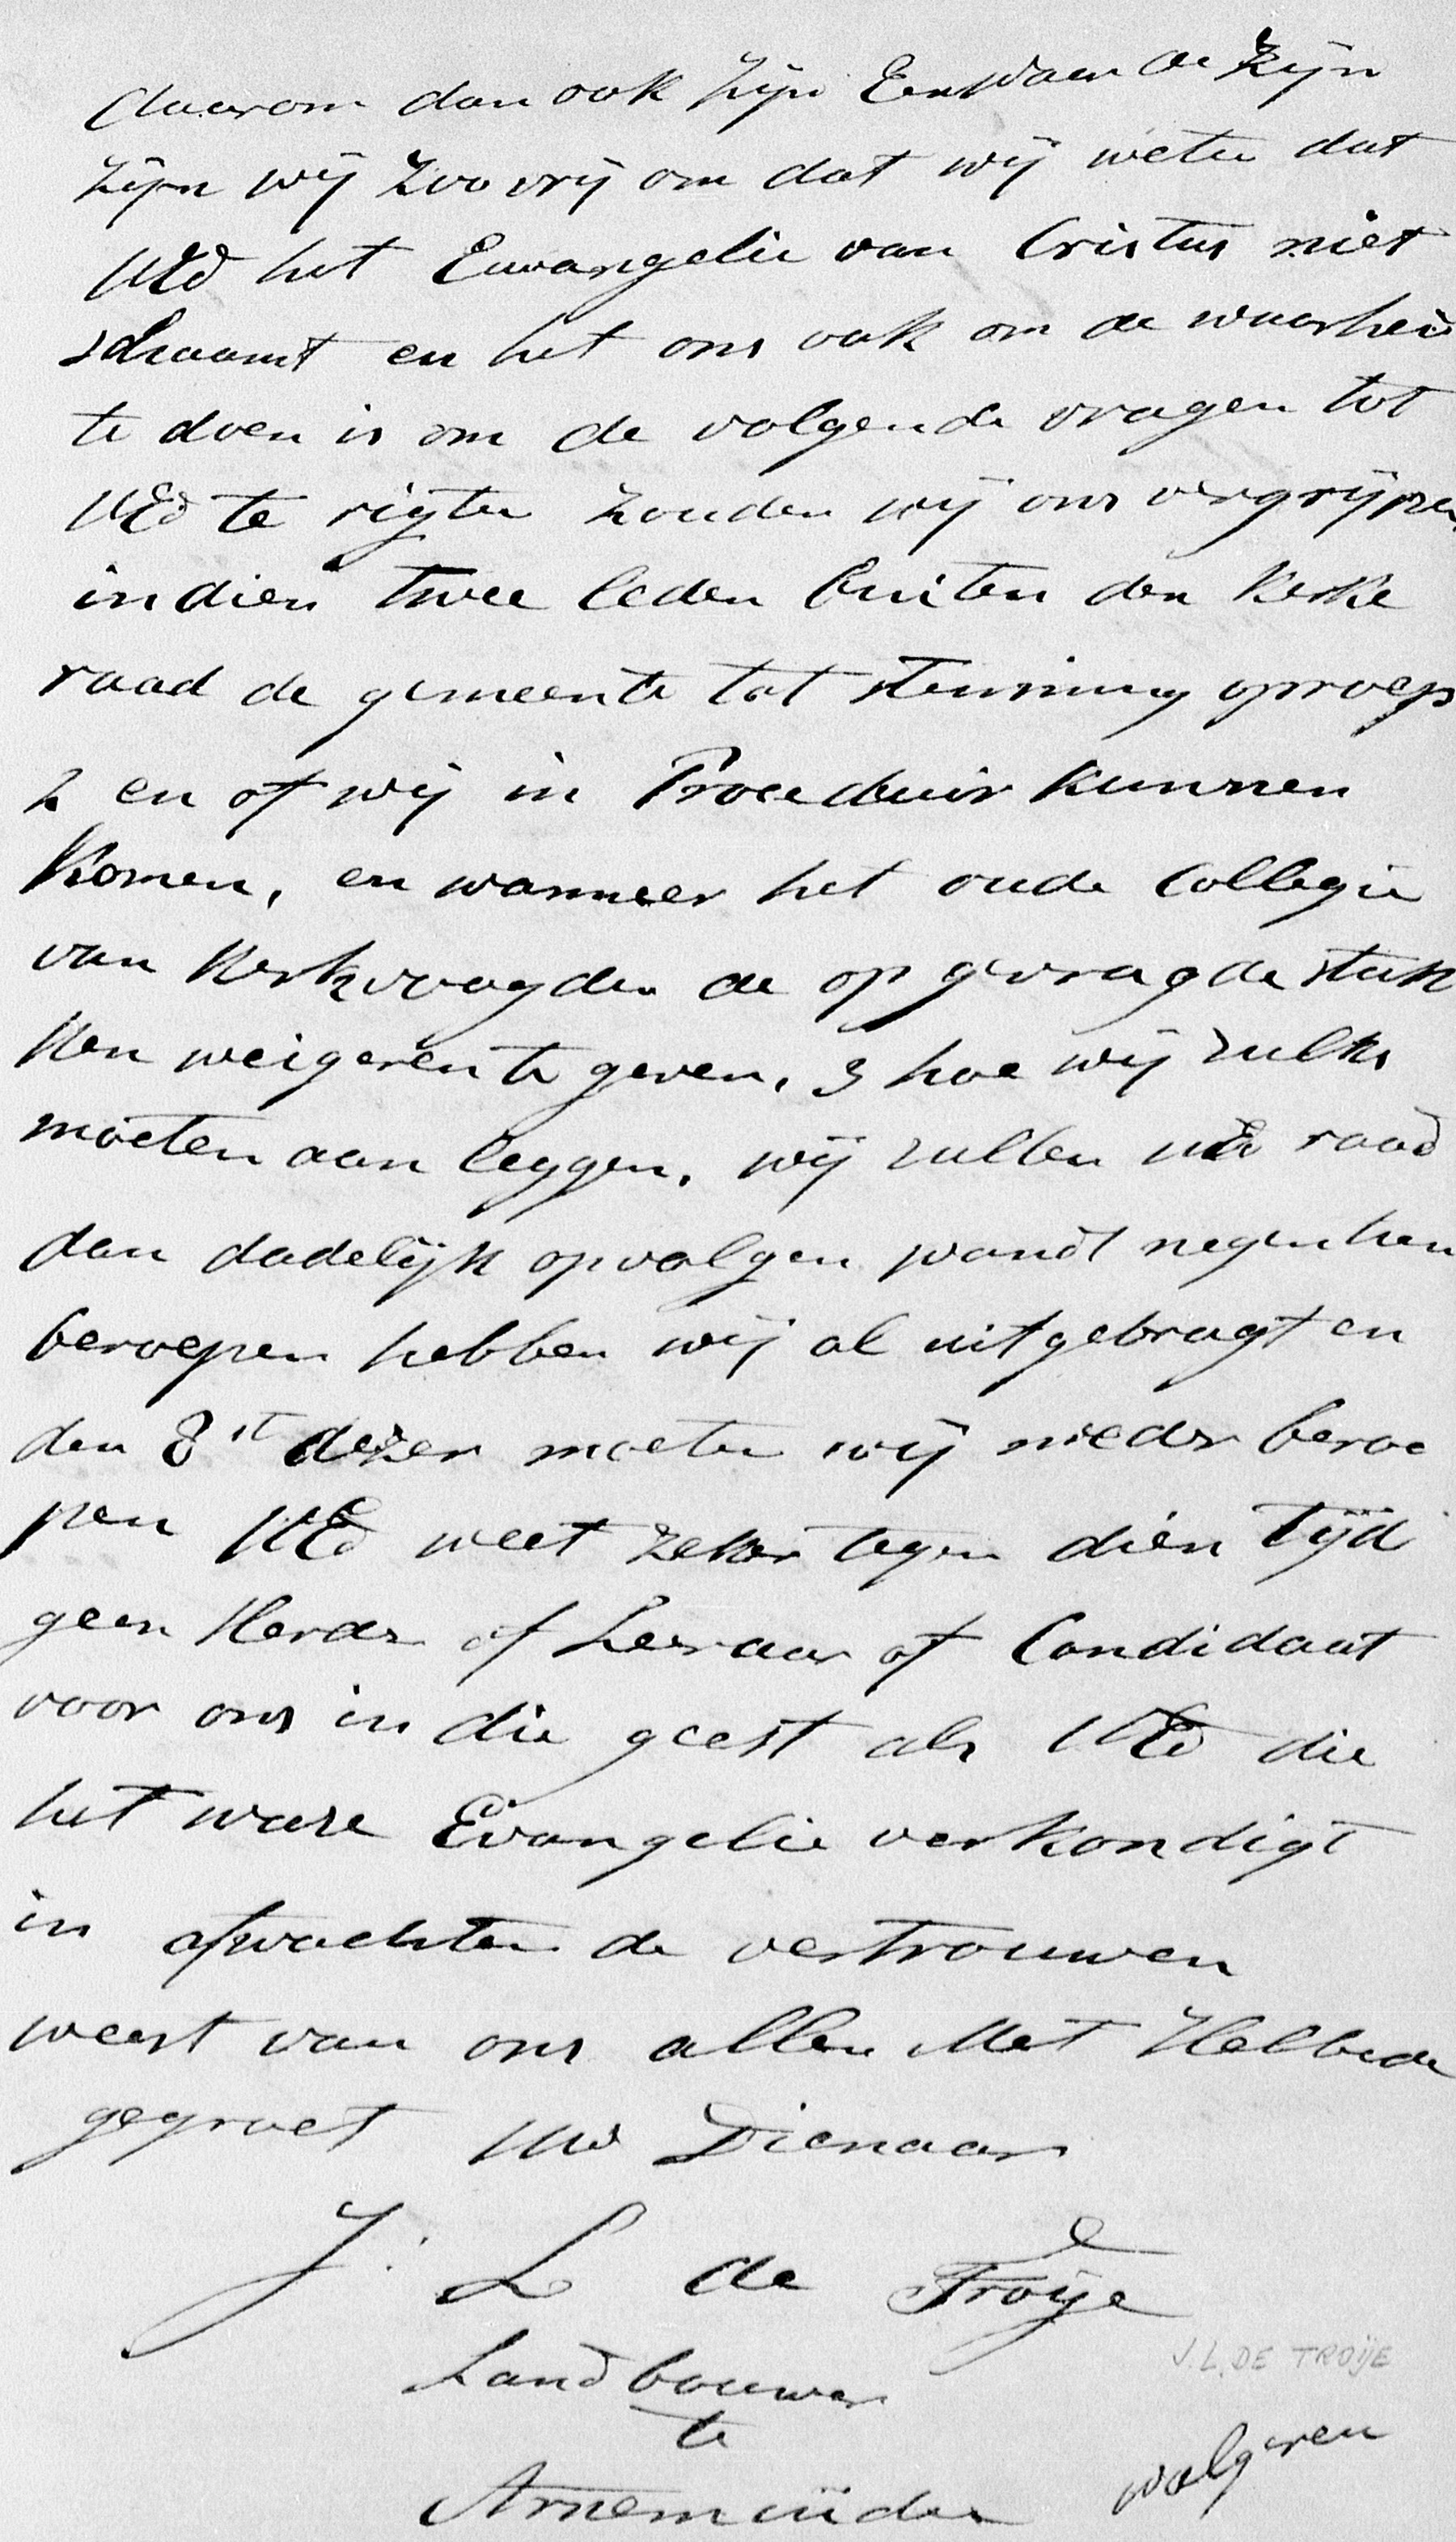 daarom dan ook zijn Eerwaarde zijn
zijn wij zoo vrij om dat wij weten dat
UEd het Euvangelie van Cristus niet
schaamt en het ons ook om de waarheid
te doen is om de volgende vragen tot
UEd te rigten zouden wij ons vergrijpen
indien twee leden buiten den Kerke
raad de gemeente tot stemming oproep
2 en of wij in Proceduir kunnen
Komen, en wanneer het oude Collegie
van Kerkvoogden de op gevraagde stuk
Ken weigeren te geven, 3 hoe wij zulks
moeten aan leggen, wij zullen UEd raad
dan dadelijk opvolgen want negentien
beroepen hebben wij al uitgebragt en
den 8st dezer moeten wij weder beroe
pen UEd weet zeker tegen dien tijd
geen Herder of Leeraar of Candidaat
voor ons in die geest als UEd die
het ware Evangelie verkondigt
in afwachten de vertrouwen
weest van ons allen Met Heilbede
gegroet UW Dienaar
J. L de Troije
Landbouwer
te
Arnemuiden
J.L. DE TROIJE